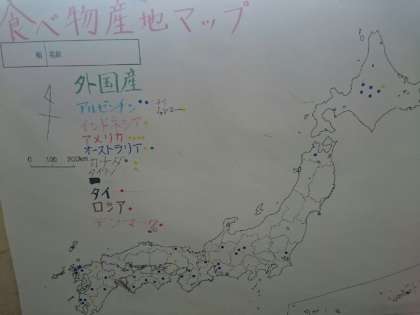 食べ物産地マップ
組 名前
外国産
アルゼンチン
インドネシア
アメリカ
オーストラリア
カナダ
0 100 200km
タイ
ロシア
デンマーク